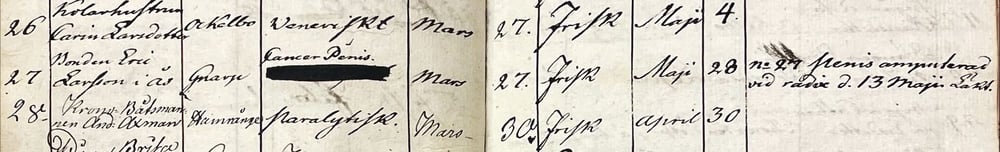 Kolarhustrun
26 Carin Larsdotter Ockelbo Veneriskt Mars 27. Frisk Maji 4.
Bonden Eric Cancer Penis.
27 Larsson i Ås Gnarp Mars 27. Frisk Maji 28 no 27 Penis amputerad
vid radix d. 13 Maji Läkt.
28 Krono Båtsman
nen And. Axman Hamrånge Paralytisk. Mars 30. Frisk April 30
Brita